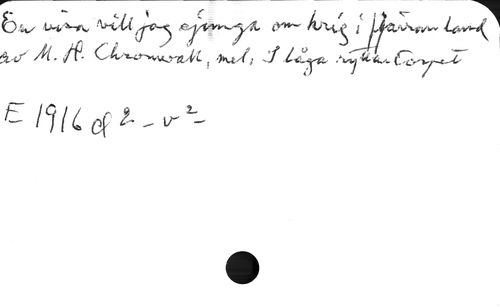 En visa vill jag sjunga om krig i fjärran land
av M. H. Chronwall, mel; I låga ryttartorpet
E 1916 d 2 - v 2 -